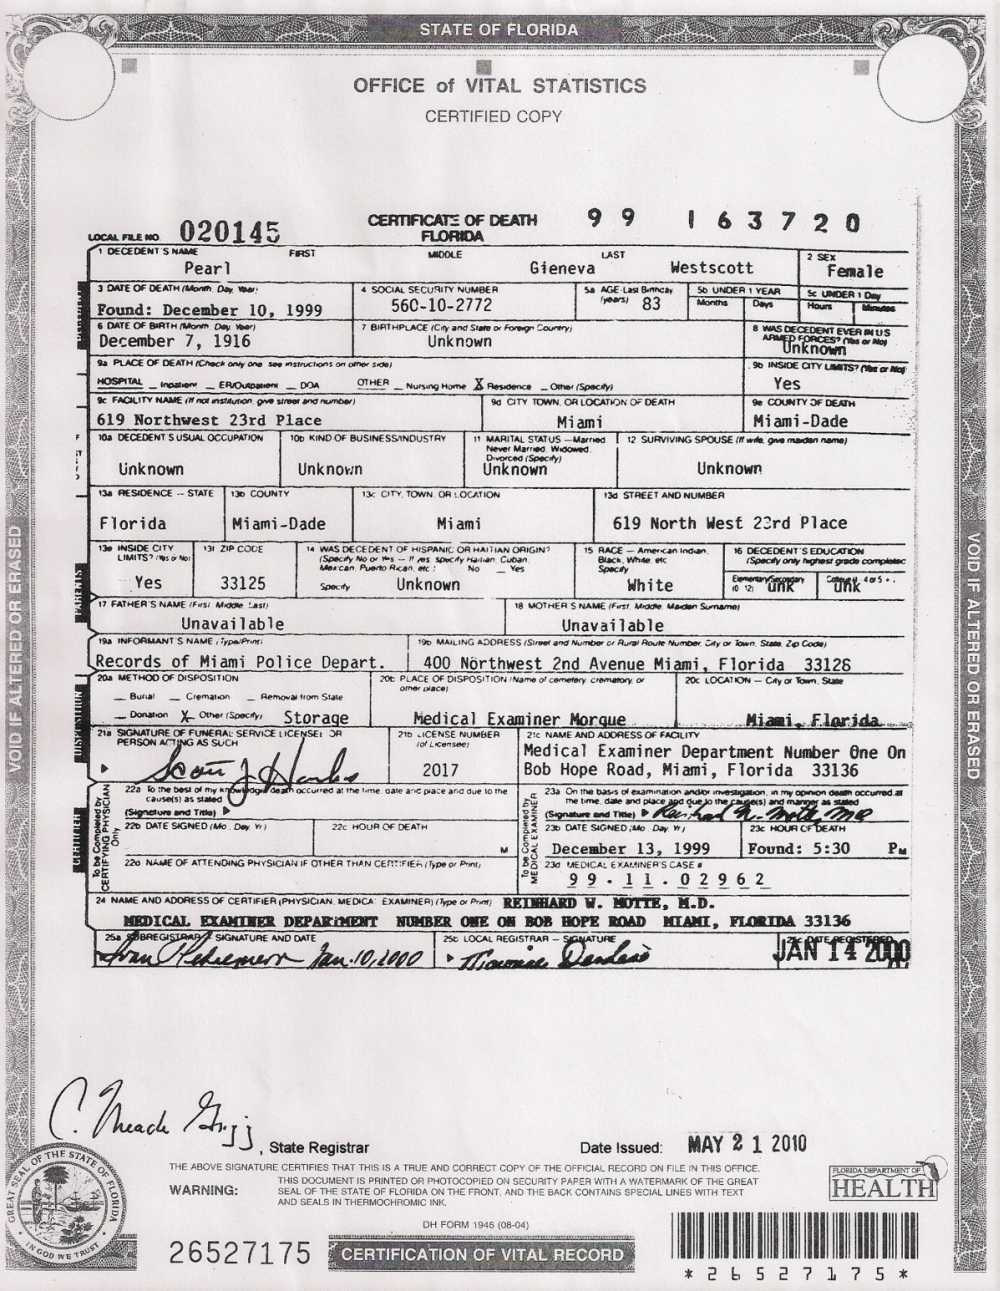 STATE OF FLORIDA
OFFICE of VITAL STATISTICS
CERTIFIED COPY
LOCAL FILE NO. 020145 CERTIFICATE OF DEATH FLORIDA 99 163720
1 DECEDENT'S NAME FIRST MIDDLE LAST 2 SEX
Pearl Gieneva Westscott Female
3 DATE OF DEATH (Month, Day, Year) 4 SOCIAL SECURITY NUMBER 5a AGE-Last Birthday (years) 5b UNDER 1 YEAR 5c UNDER 1 Day
Found: December 10, 1999 560-10-2772 83 Months Days Hours Minutes
6 DATE OF BIRTH (Month, Day, Year) 7 BIRTHPLACE (City and State or Foreign Country) 8 WAS DECEDENT EVER IN U.S. ARMED FORCES? (Yes or No)
December 7, 1916 Unknown Unknown
9a PLACE OF DEATH (Check only one see instructions on other side) 9b INSIDE CITY LIMITS? (Yes or No)
HOSPITAL _ Inpatient _ ER/Outpatient _ DOA OTHER _ Nursing Home X Residence _ Other (Specify) Yes
9c FACILITY NAME (If not institution, give street and number) 9d CITY TOWN, OR LOCATION OF DEATH 9e COUNTY OF DEATH
619 Northwest 23rd Place Miami Miami-Dade
10a DECEDENT'S USUAL OCCUPATION 10b KIND OF BUSINESS/INDUSTRY 11 MARITAL STATUS — Married Never Married, Widowed, Divorced (Specify) 12 SURVIVING SPOUSE (If wife, give maiden name)
Unknown Unknown Unknown Unknown
13a RESIDENCE — STATE 13b COUNTY 13c CITY, TOWN, OR LOCATION 13d STREET AND NUMBER
Florida Miami-Dade Miami 619 North West 23rd Place
13e INSIDE CITY LIMITS? (Yes or No) 13f ZIP CODE 14 WAS DECEDENT OF HISPANIC OR HAITIAN ORIGIN? (Specify No or Yes — If yes, specify Haitian, Cuban, Mexican, Puerto Rican, etc.) No _ Yes 15 RACE — American Indian, Black, White, etc Specify 16 DECEDENT'S EDUCATION (Specify only highest grade completed
Elementary/Secondary (0 12) College
Yes 33125 Specify Unknown White unk unk
PARENTS
17 FATHER'S NAME (First, Middle, Last) 18 MOTHER'S NAME (First, Middle, Maiden Surname)
Unavailable Unavailable
19a INFORMANT'S NAME (Type/Print) 19b MAILING ADDRESS (Street and Number or Rural Route Number, City or Town, State, Zip Code)
Records of Miami Police Depart. 400 Northwest 2nd Avenue Miami, Florida 33128
DISPOSITION
20a METHOD OF DISPOSITION 20b PLACE OF DISPOSITION (Name of cemetery, crematory, or other place) 20c LOCATION — City or Town, State
_ Burial _ Cremation _ Removal from State
_ Donation X Other (Specify) Storage Medical Examiner Morgue Miami, Florida
21a SIGNATURE OF FUNERAL SERVICE LICENSEE OR PERSON ACTING AS SUCH 21b LICENSE NUMBER (of Licensee) 21c NAME AND ADDRESS OF FACILITY
2017 Medical Examiner Department Number One On
Bob Hope Road, Miami, Florida 33136
CERTIFIER
To be Completed by CERTIFYING PHYSICIAN Only
22a To the best of my knowledge death occurred at the time, date and place and due to the cause(s) as stated
(Signature and Title)
To be Completed by MEDICAL EXAMINER
23a On the basis of examination and/or investigation, in my opinion death occurred at the time, date and place and due to the cause(s) and manner as stated
(Signature and Title)
22b DATE SIGNED (Mo., Day, Yr) 22c HOUR OF DEATH M 23b DATE SIGNED (Mo., Day, Yr) 23c HOUR OF DEATH
December 13, 1999 Found: 5:30 PM
22d NAME OF ATTENDING PHYSICIAN IF OTHER THAN CERTIFIER (Type or Print) 23d MEDICAL EXAMINER'S CASE #
99-11-02962
24 NAME AND ADDRESS OF CERTIFIER (PHYSICIAN, MEDICAL EXAMINER) (Type or Print) REINHARD W. MOTTE, M.D.
MEDICAL EXAMINER DEPARTMENT NUMBER ONE ON BOB HOPE ROAD MIAMI, FLORIDA 33136
25a SUBREGISTRAR SIGNATURE AND DATE 25b LOCAL REGISTRAR — SIGNATURE 25c DATE REGISTERED
Jan. 10, 2000 JAN 14 2000
VOID IF ALTERED OR ERASED
VOID IF ALTERED OR ERASED
C. Meade Grigg, State Registrar Date Issued: MAY 21 2010
THE ABOVE SIGNATURE CERTIFIES THAT THIS IS A TRUE AND CORRECT COPY OF THE OFFICIAL RECORD ON FILE IN THIS OFFICE.
WARNING: THIS DOCUMENT IS PRINTED OR PHOTOCOPIED ON SECURITY PAPER WITH A WATERMARK OF THE GREAT
SEAL OF THE STATE OF FLORIDA ON THE FRONT, AND THE BACK CONTAINS SPECIAL LINES WITH TEXT
AND SEALS IN THERMOCHROMIC INK.
FLORIDA DEPARTMENT OF
HEALTH
GREAT SEAL OF THE STATE OF FLORIDA
IN GOD WE TRUST
DH FORM 1946 (08-04)
26527175 CERTIFICATION OF VITAL RECORD
*26527175*